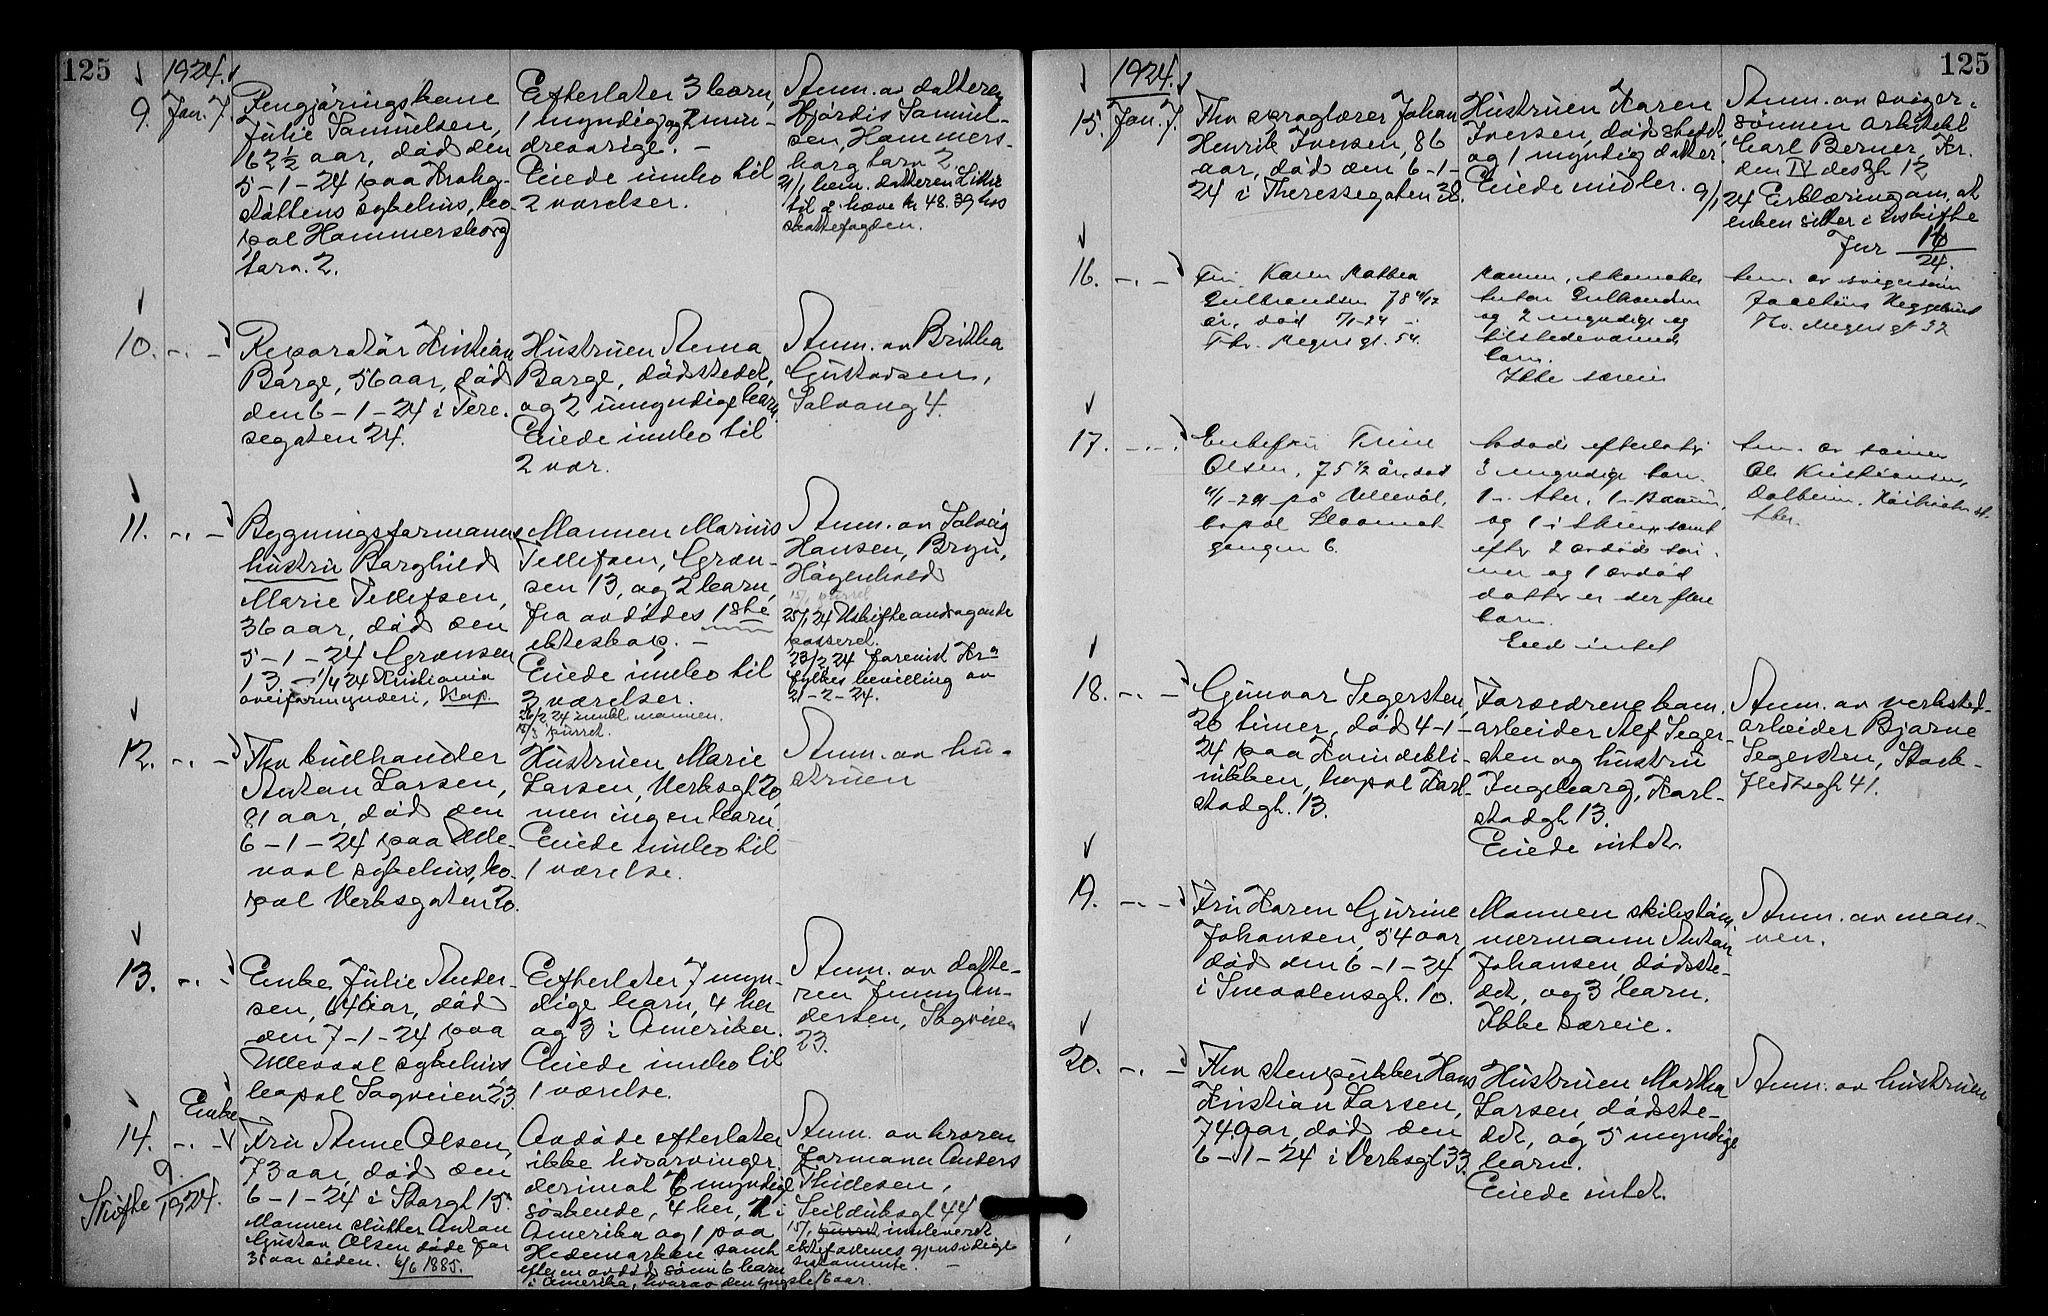 125
1924.
9. Jan. 7.
Rengjøringskone
Julie Samuelsen,
62 1/2 aar, død den
5-1-24 paa Krohg-
støttens sykehus, bo-
pæl Hammersborg
torv. 2.
Efterlater 3 barn,
1 myndig og 2 min-
dreaarige. -
Eiede indbo til
2 værelser.
Anm. av datteren
Hjørdis Samuel-
sen, Hammers-
borg torv 2.
21/1 bem. datteren
til å hæve kr 48.39 hos
skattefogden.
10. -.-
Reparatør Kristian
Borge, 56 aar, død
den 6-1-24 i There-
segaten 24.
Hustruen Anna
Borge, dødsstedet,
og 2 umyndige barn.
Eiede indbo til
2 vær.
Anm. av Britha
Gustavsen,
Solvang 4.
11. -.-
Bygningsformanns
hustru Borghild
Marie Tellefsen,
36 aar, død den
5-1-24 Grænsen
13. - 1/4 24 Kristiania
overformynderi, Kap.
Mannen Marius
Tellefsen, Græn-
sen 13, og 2 barn,
fra avdødes 1ste
ekteskap. -
Eiede indbo til
3 værelser.
26/2 24 innk. mannen.
18/3 purret.
Anm. av Solveig
Hansen, Bryn,
15/1 purret
25/1 24 Uskifteandragende
passeret.
23/2 24 forevist Kr.a
fylkes bevilling av
21-2-24.
12. -.-
Fhv kullhandler
Anton Larsen,
81 aar, død den
6-1-24 paa Ulle-
vaal sykehus, bo-
pæl Verksgaten 20.
Hustruen Marie
Larsen, Verksgt 20,
men ingen barn.
Eiede indbo til
1 værelse.
Anm. av hu-
struen
13. -.-
Enke Julie Ander-
sen, 64 aar, død
den 7-1-24 paa
Ullevaal sykehus,
bopæl Sagveien 23.
Efterlater 7 myn-
dige barn, 4 her
og 3 i Amerika.
Eiede indbo til
1 værelse.
Anm. av datte-
ren Jenny An-
dersen, Sagveien
23.
Enke
14. -.-
Skifte 9/1 1924.
Fru Anne Olsen,
73 aar, død den
6-1-24 i Storgt 15.
Mannen slukker Anton
Gustav Olsen døde for
35 aar siden. 6/6 1885.
Avdøde efterlater
ikke livsarvinger
derimot 6 myndige
søskende, 4 her, 1 i
Amerika og 1 paa
Hedemarken samt
efter en avdød sønn 6 barn
i Amerika, hvorav den yngste 16 aar.
Anm. av broren
formann Anders
Thidesen,
Seilduksgt 44
15/1 purret innleveret
ektefolkenes gjensidige
testamente. -
125
1924.
15. Jan. 7.
Fhv sproglærer Johan
Henrik Iversen, 86
aar, død den 6-1-
24 i Theressegaten 38.
Hustruen Karen
Iversen, dødsstedet,
og 1 myndig datter.
Eiede midler.
Anm. av sviger-
sønnen arkitekt
Carl Berner, Kr.
den IV desgt 12
9/1 24 Erklæring om, at
enken sitter i uskifte
Jnr 16/24.
16. -.-
Fru Karen Mathea
Gulbrandsen 78 1/2
år, død 7/1-24 i
Thv. Meyersgt. 54.
Mannen,
Anton Gulbrandsen
og 2 myndige og
tilstedeværende
barn.
Ikke særeie
Anm. av svigersønn
Thv. Meyers gt 32
17. -.-
Enkefru Trine
Olsen, 75 1/2 år, død
4/1-24 på Ullevål,
bopæl
gangen 6.
Avdøde efterlater
3 myndige barn.
1 - Aker, 1 - Bærum,
og 1 i Skien, samt
efter 2 avdøde søn-
ner og 1 avdød
datter er der flere
barn.
Eied intet
Anm. av sønnen
Ole Kristiansen,
Dalheim.
Aker.
18. -.-
Gunvor Segersten,
20 timer, død 4-1-
24 paa Kvindekli-
nikken, bopæl Karl-
stadgt. 13.
Forældrene bann.
arbeider Alf Seger-
sten og hustru
Ingeborg, Karl-
stadgt 13.
Eiede intet.
Anm. av verksted-
arbeider Bjarne
Segersten, Stock-
fledtsgt 41.
19. -.-
Fru Karen Gurine
Johansen, 54 aar,
død den 6-1-24
i Smaalensgt. 10.
Mannen skibstøm-
mermann Anton
Johansen, dødsste-
det, og 3 barn.
Ikke særeie.
Anm. av man-
nen.
20. -.-
Fhv stenpukker Hans
Kristian Larsen,
74 aar, død den
6-1-24 i Verksgt 33.
Hustruen Martha
Larsen, dødsste-
det, og 5 myndige
barn.
Eiede intet.
Anm. av hustruen